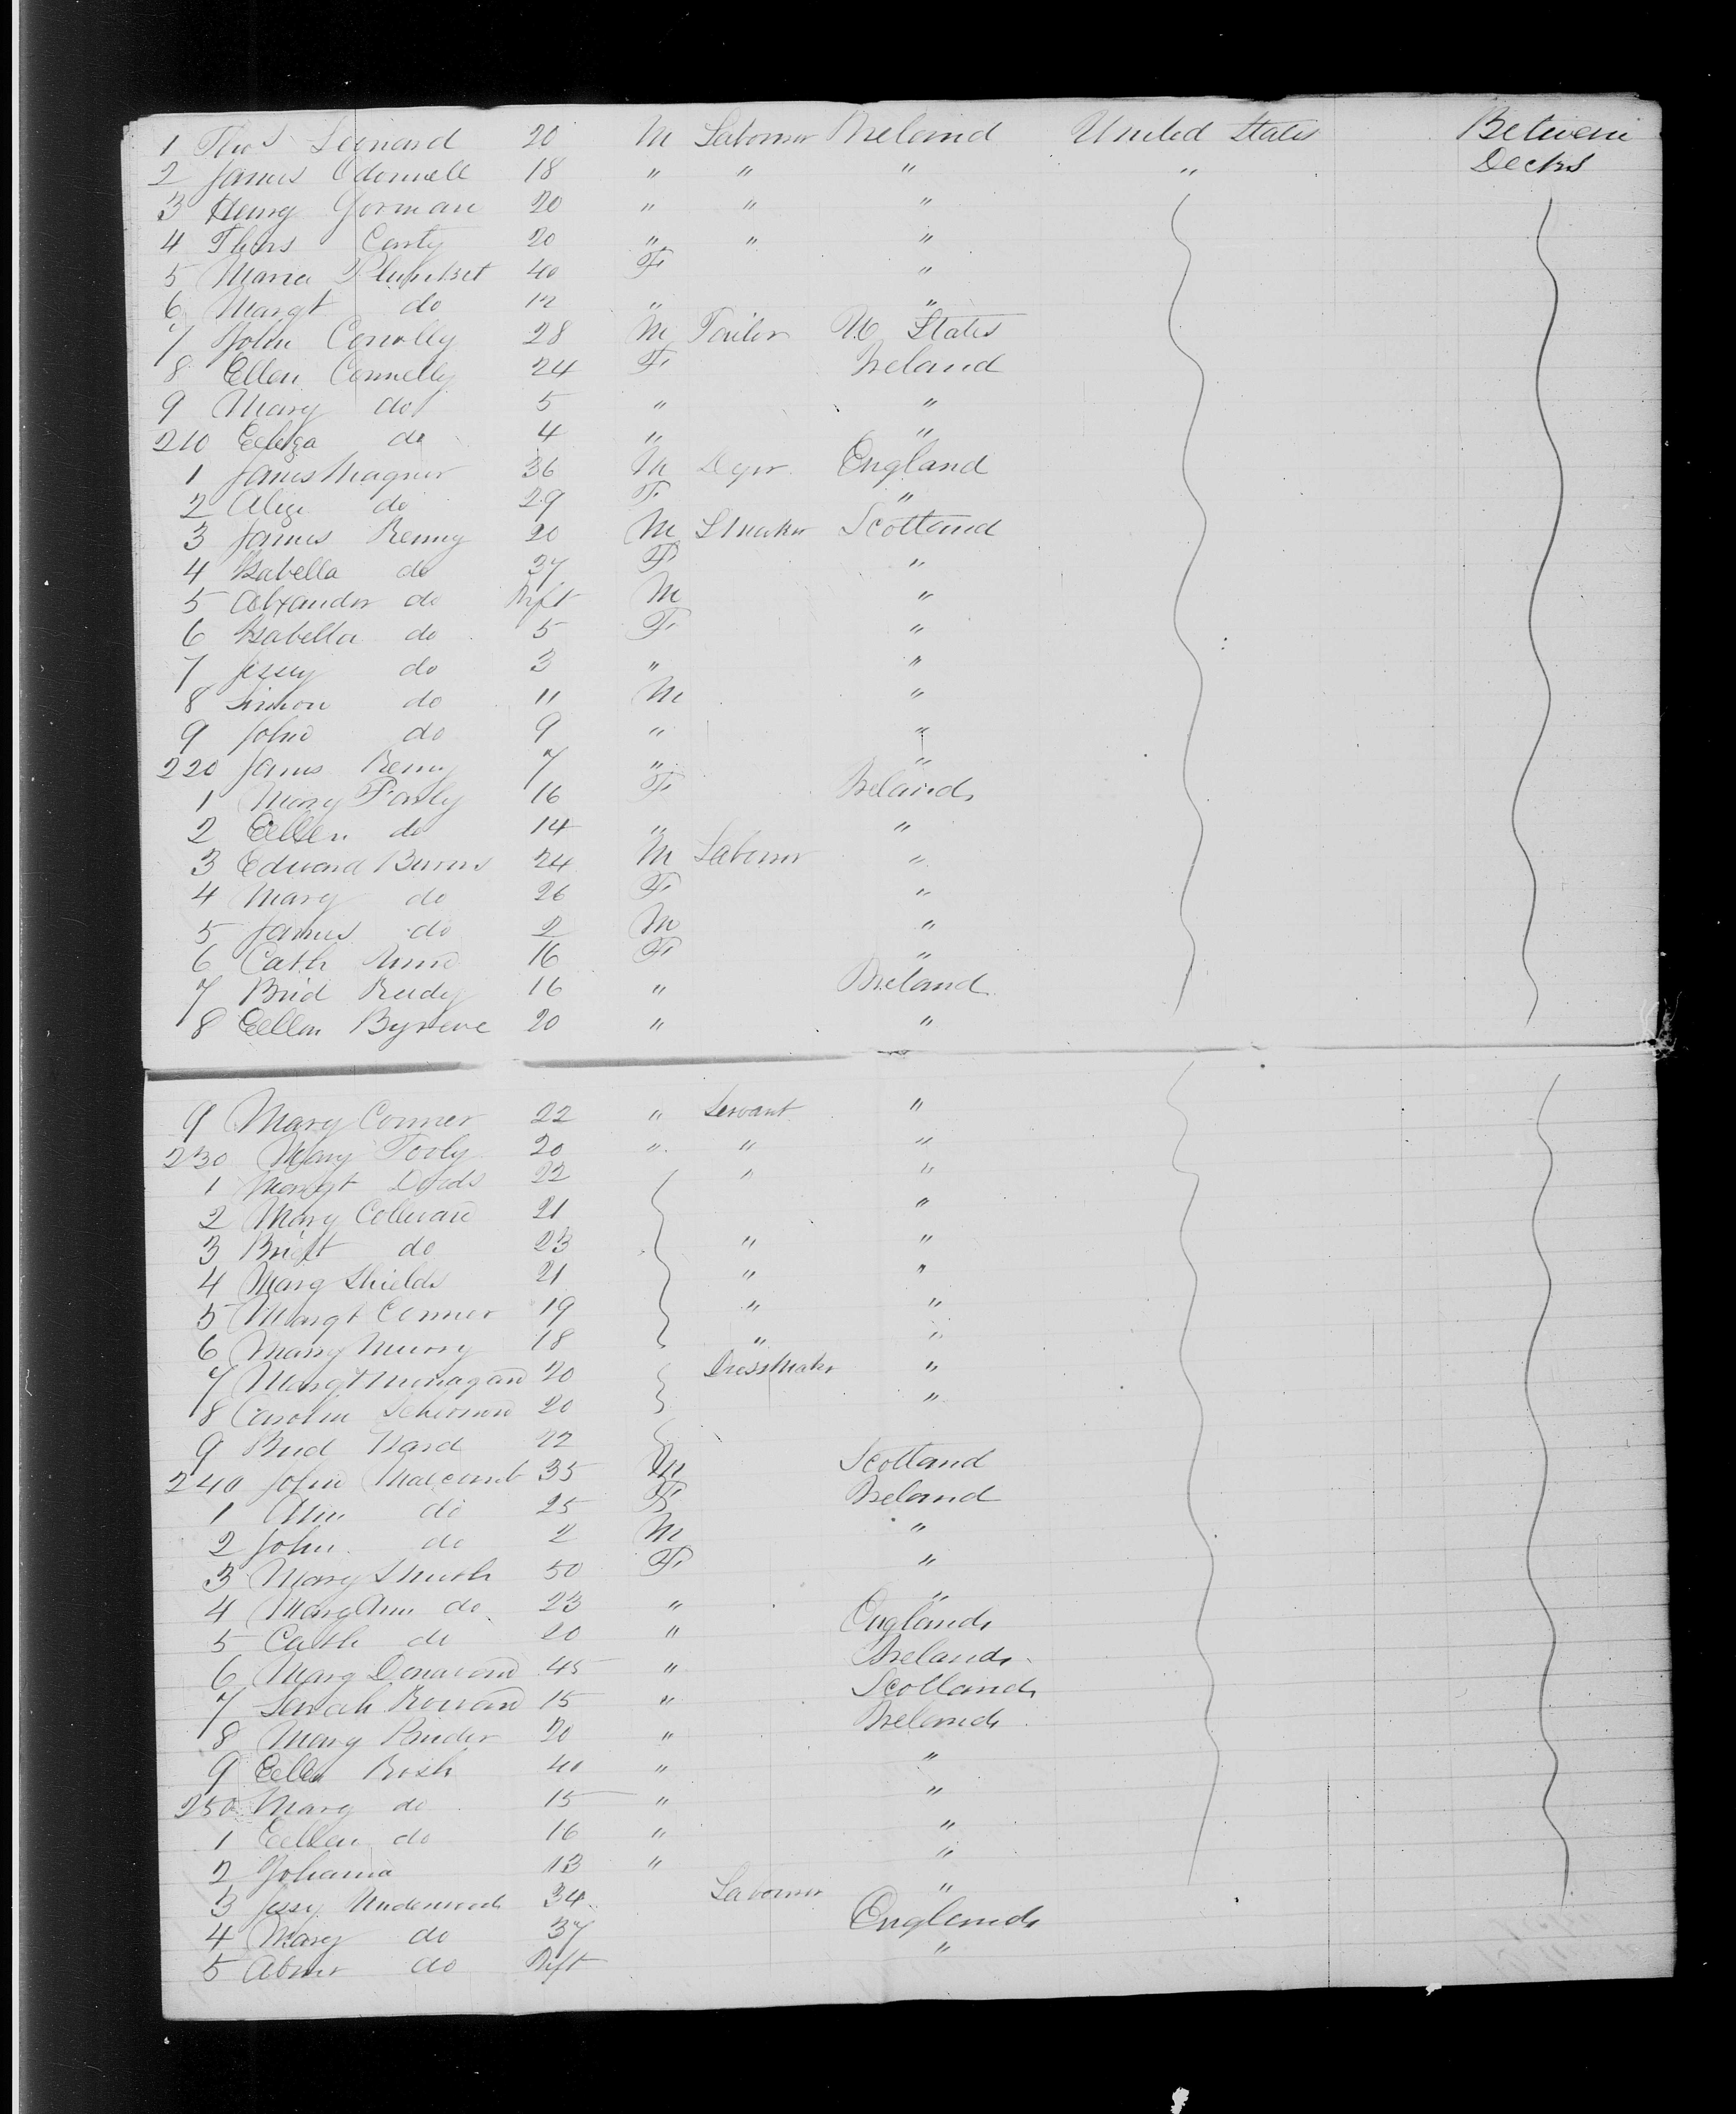 1 Thos Leonard 20 M Laborer Ireland United States Between
2 James Odonnell 18 " " " " Decks
3 Henry Gorman 20 " " "
4 Thos Canty 20 " " "
5 Maria Plunket 40 F "
6 Margt do 12 " "
7 John Conolly 28 M Tailor U States
8 Ellen Connelly 24 F Ireland
9 Mary do 5 " "
210 Eeliza do 4 " "
1 James Meagner 36 M Dyer England
2 Aliza do 29 F "
3 James Renny 20 M S Maker Scotland
4 Isabella do 37 F "
5 Alexander do Inft M "
6 Isabella do 5 F "
7 Jessey do 3 " "
8 Simon do 11 M "
9 John do 9 " "
220 James Renny 7 " "
1 Mary Farly 16 F Ireland
2 Eellen do 14 " "
3 Edward Burns 24 M Laborer "
4 Mary do 26 F "
5 James do 2 M "
6 Cath 16 F "
7 Brid Reedy 16 " Ireland
8 Eellen Byrene 20 " "
9 Mary Conner 22 " Servant "
230 Mary Tooly 20 " " "
1 Margt Dodds 22 " "
2 Mary Colleran 21 "
3 Bridt do 23 " "
4 Mary Shields 21 " "
5 Margt Conner 19 " "
6 Mary Murry 18 " "
7 Margt Monagan 20 DressMaker "
8 Carolin 20 "
9 Brid Ward 22
240 John Malcomb 35 M Scotland
1 Ann do 25 F Ireland
2 John do 2 M "
3 Mary Smith 50 F "
4 Mary Ann do 23 " "
5 Cath do 20 " England
6 Mary Donavan 45 " Ireland
7 Sarah Rowan 15 " Scotland
8 Mary Pinder 20 " Ireland
9 Eellen Rosh 40 " "
250 Mary do 15 " "
1 Eellen do 16 " "
2 Johanna 13 " "
3 Jessy Underwood 34 Laborer "
4 Mary do 37 England
5 Abner do Inft "